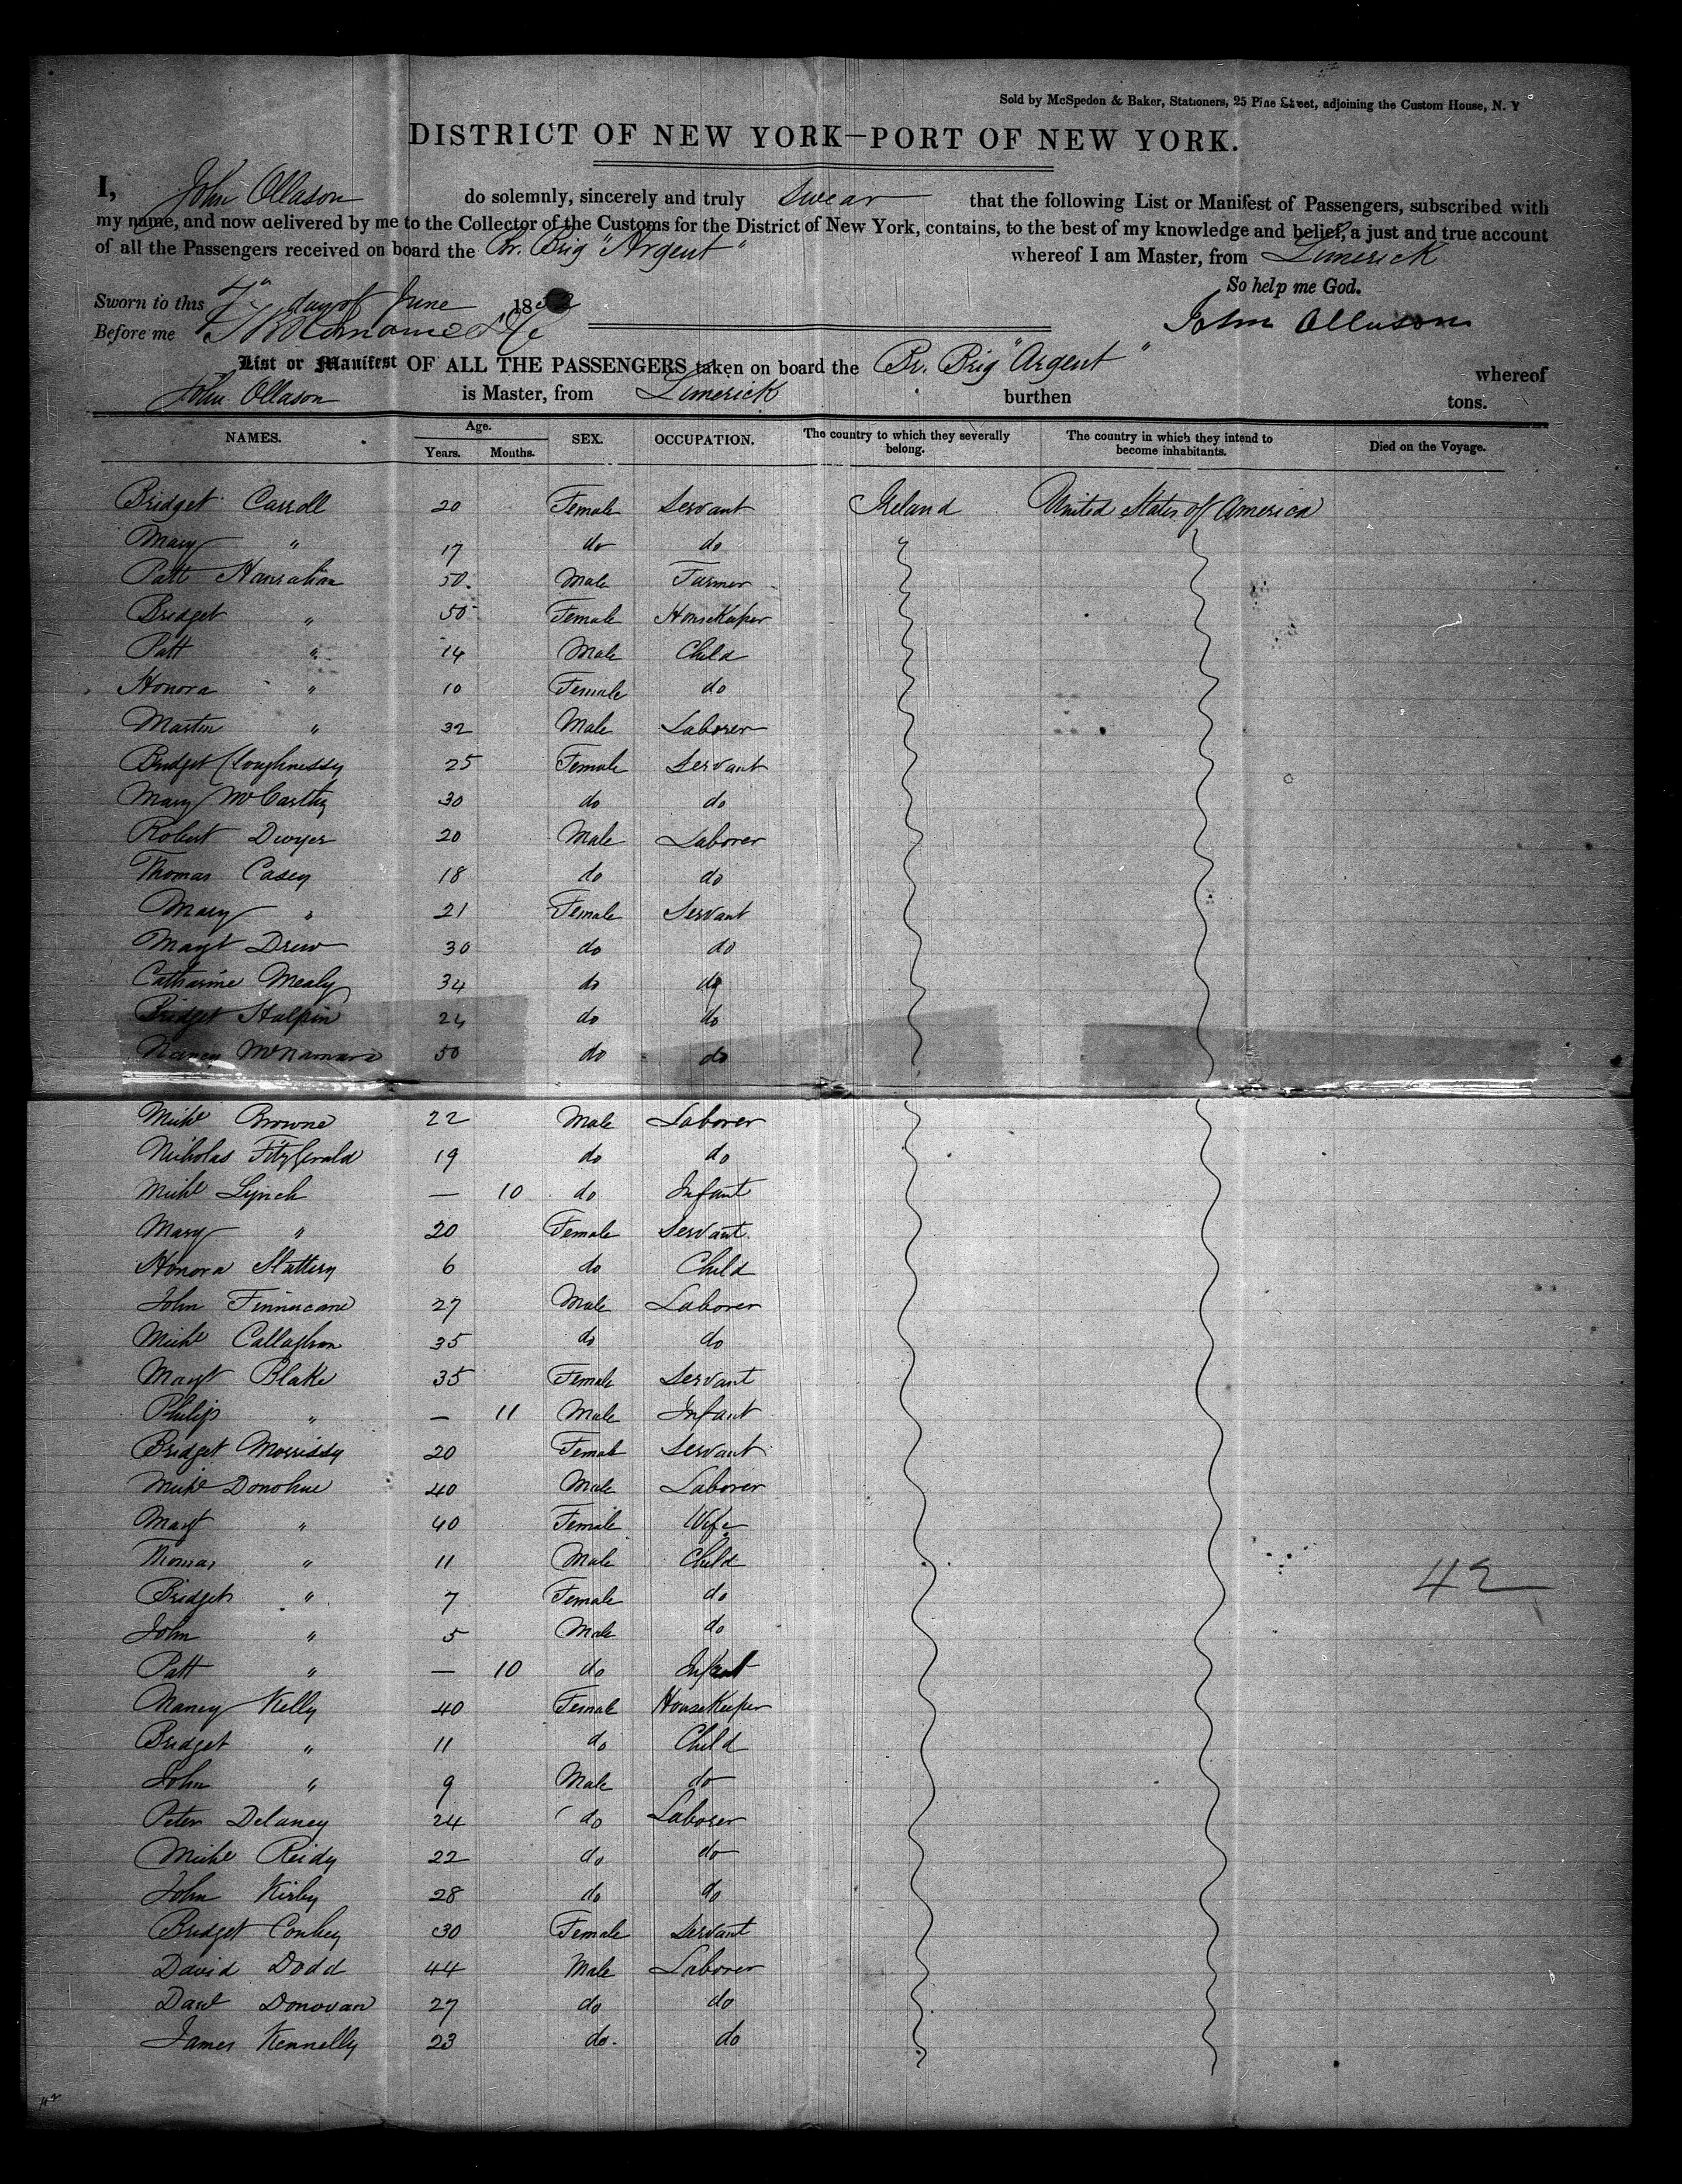 Sold by McSpedon & Baker, Stationers, 25 Pine Street, adjoining the Custom House, N. Y
DISTRICT OF NEW YORK—PORT OF NEW YORK.
I, John Ollason do solemnly, sincerely and truly swear that the following List or Manifest of Passengers, subscribed with
my name, and now delivered by me to the Collector of the Customs for the District of New York, contains, to the best of my knowledge and belief, a just and true account
of all the Passengers received on board the Br. Brig "Argent" whereof I am Master, from Limerick
So help me God.
Sworn to this 7" day of June 185
Before me John Ollason
List or Manifest OF ALL THE PASSENGERS taken on board the Br. Brig "Argent" whereof
John Ollason is Master, from Limerick burthen tons.
NAMES. Age. Years. Months. SEX. OCCUPATION. The country to which they severally belong. The country in which they intend to become inhabitants. Died on the Voyage.
Bridget Carroll 20 Female Servant Ireland United States of America
Mary " 17 do do
Patt Hanrahan 50 Male Farmer
Bridget " 50 Female HouseKeeper
Patt " 14 Male Child
Honora " 10 Female do
Martin " 32 Male Laborer
Bridget Cloughnessy 25 Female Servant
Mary McCarthy 30 do do
Robert Dwyer 20 Male Laborer
Thomas Casey 18 do do
Mary " 21 Female Servant
Margt Drew 30 do do
Catharine Mealy 34 do do
Bridget Halpin 24 do do
Nancy McNamara 50 do do
Michl Browne 22 Male Laborer
Nicholas FitzGerald 19 do do
Michl Lynch — 10 do Infant
Mary " 20 Female Servant
Honora Slattery 6 do Child
John Finnucane 27 Male Laborer
Michl Callaghan 35 do do
Margt Blake 35 Female Servant
Philip " — 11 Male Infant
Bridget Morrissy 20 Female Servant
Michl Donohue 40 Male Laborer
Margt " 40 Female Wife
Thomas " 11 Male Child
Bridget " 7 Female do
John " 5 Male do
Patt " — 10 do Infant
Nancy Kelly 40 Female HouseKeeper
Bridget " 11 do Child
John " 9 Male do
Peter Delaney 24 do Laborer
Michl Reidy 22 do do
John Kirby 28 do do
Bridget Conhey 30 Female Servant
David Dodd 44 Male Laborer
Danl Donovan 27 do do
James Kennelly 23 do do
42